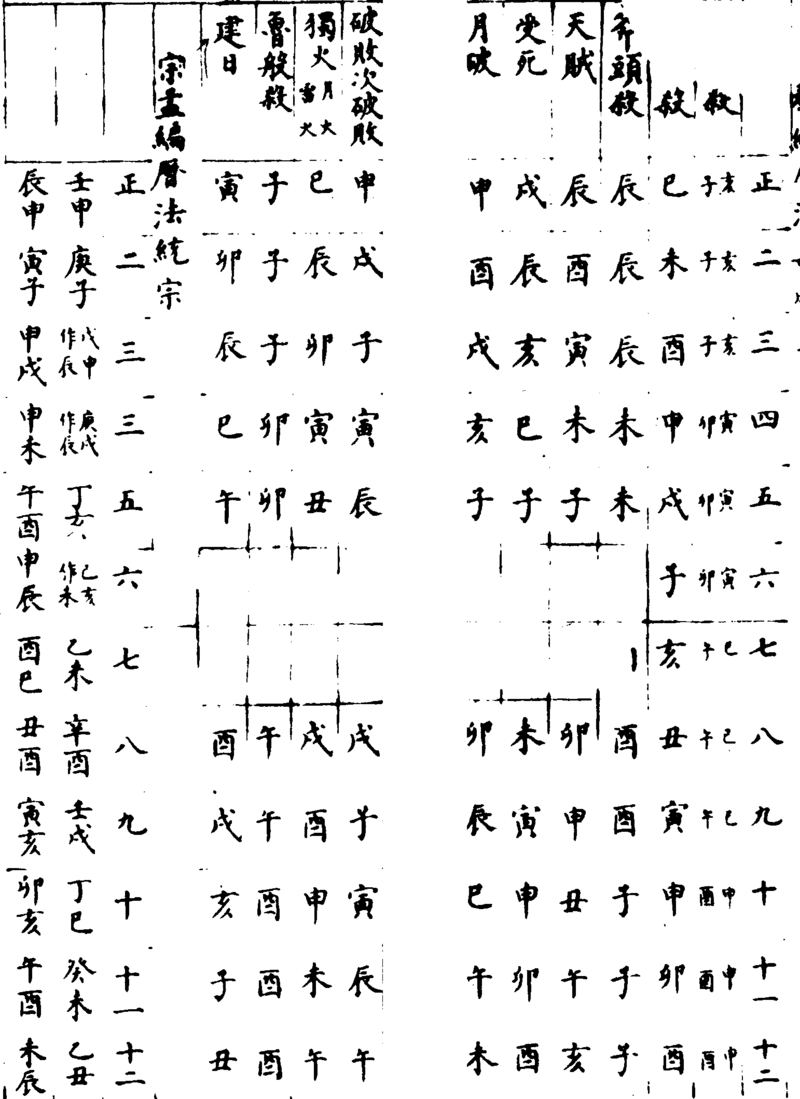 正 二 三 四 五 六 七 八 九 十 十一 十二
殺 亥子 亥子 亥子 寅卯 寅卯 寅卯 巳午 巳午 巳午 申酉 申酉 申酉
殺 巳 未 酉 申 戌 子 亥 丑 寅 申 卯 酉
斧頭殺 辰 辰 辰 未 未 酉 酉 子 子 子
天賊 辰 酉 寅 未 子 卯 申 丑 午 亥
受死 戌 辰 亥 巳 子 未 寅 申 卯 酉
月破 申 酉 戌 亥 子 卯 辰 巳 午 未
破敗次破敗 申 戌 子 寅 辰 戌 子 寅 辰 午
獨火 月火 雷火 巳 辰 卯 寅 丑 戌 酉 申 未 午
魯般殺 子 子 子 卯 卯 午 午 酉 酉 酉
建日 寅 卯 辰 巳 午 酉 戌 亥 子 丑
宗孟編曆法統宗
正 二 三 三 五 六 七 八 九 十 十一 十二
壬申 庚子 戊申作辰 庚戌作辰 丁亥 己亥作未 乙未 辛酉 壬戌 丁巳 癸未 乙丑
辰申 寅子 申戌 申未 午酉 申辰 酉巳 丑酉 寅亥 卯亥 午酉 未辰